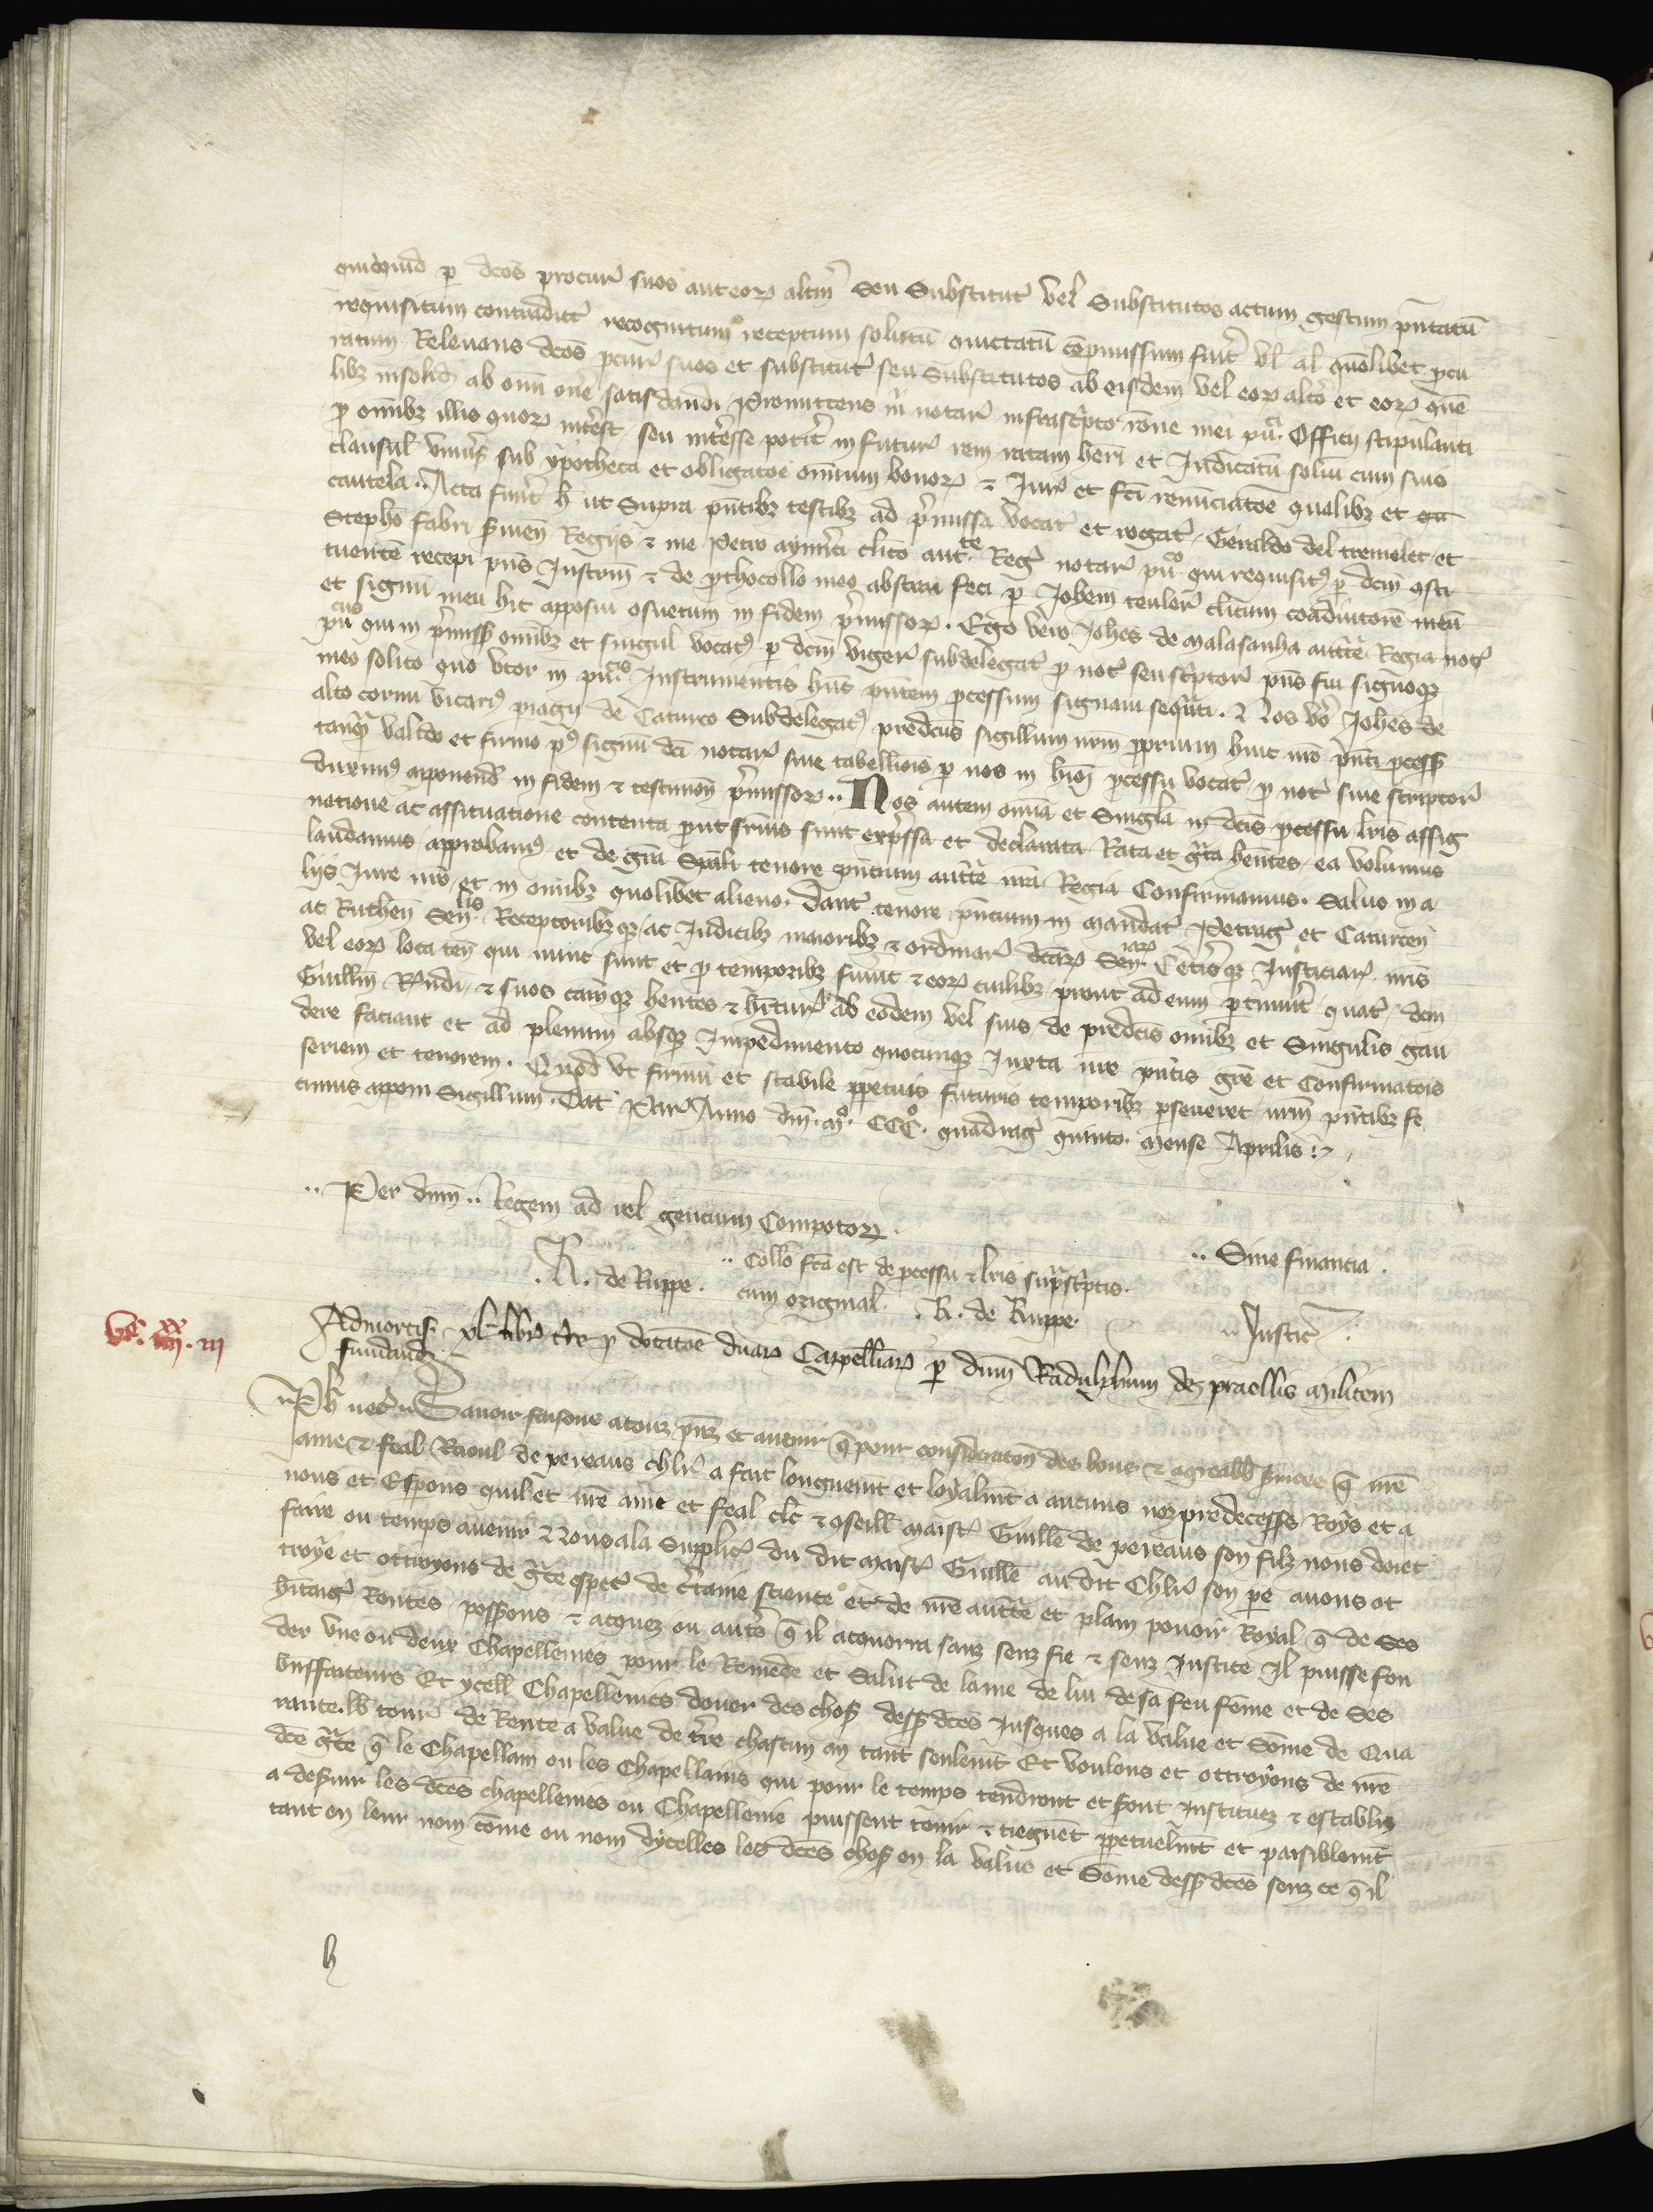 quidquid per dcos procur suos aut eor altm seu Substitut vel Substitutos actum gestum
requisitum recognitum receptum solutū quictatū fuit vl al quolibet pcu
ratum Relevans dcos pcur suos et substitut seu Substitutos ab eisdem vel eor altō et eor quē
libz insolid ab omi one satisdandi promittens m notar infrascpto rōne mei pu Officii stipulanti
p omibz illis quor intest seu intesse potit in futur rem ratam heri et Iudicatū solui cum suis
clausul sub ypotheca et obligatoe omium bonor & Iur et fci renunciatoe qualibz et
cautela .. Acta fuut h ut Supra pntibz testibz ad pmissa vocat et rogat Geraldo del tremolet et
Stepho fabri Regijs & me Petro clico autte Reg notar puo qui requisit p dcm
recepi pns Instrm & de pthocollo meo abstrai feci p Johem clicum coadiutore meu
et signu meu hic apposui osuetum in fidem pmissor . Ego vero Johes de Malasanha auctte Regia not
pucus qui in pmiss omibz et singul vocat p dcm Viger subdelegat p not seu scptor pns fui signoq
meo solito quo vtor in puco Instrumentis hūc pntem pcessum signavi sequēti . Nos vo Johes de
alto cornu vicari de Caturco Subdelegat predcus sigillum nrm pprium huic nro pnti pcess
tanq valido et firmo p signu dci notar sive tabellionis p nos in hioi pcessu vocat p not sive scriptor
duximus apponend in fidem & testimon pmissor .. Nos autem omia et Singla in dcis pcessu lris assig
natione ac assituatione contenta put suis sunt expssa et declarata Rata et gta hentes ea volumus
laudamus approbam et de gra Spali tenore pntium auctte nra Regia Confirmamus . Salvo in a
liis Iure nro et in omibz quolibet alieno . Dant tenore pntium in mandat Petrag et Caturcen
ac Ruthen Senlis Receptoribzq ac Iudicibz maioribz & ordinar dcar Seniar Cetisq Iusticiar nris
vel eor loca ten qui nunc sunt et p temporibz fuint & eor cuilibz prout ad eum ptinuit quat dcm
Guillm Rndi & suos camq hentes & hitur ab eodem vel suis de predcis omibz et Singulis gau
dere faciant et ad plenum absq Impedimento quocunq Iuxta nre pntis gre et Confirmatois
seriem et tenorem . Quod vt firmu et stabile ppetuis futuris temporibz pseveret nrm pntibz fe
cimus apponi Sigillum . Dat Paris Anno dni mo CCCo quadrag quinto mense Aprilis
.. Per dnm .. Regem ad rel gentium Compotor .
.. Sine financia .
.. Collo fca est de pcessu & lris supscptis .
. R . de Ruppe . cum original . R . de Ruppe .
.. Justice
vc . iiiixx . iii
Admortis . xl libr tre p dotatoe duar Capellaniar p dnm Radulphum de praellis militem
fundand
Ph uec Savoir faisons a touz psnz et avenir q pour consideraton des bons & agreabl svices q nre
ame & feal Raoul de pereaus chlr a fait longuemt et loyalmt a aucuns noz predecess Roys et a
nous et Espons quil et nre ame et feal clc & oseill maist Guille de pereaus son filz nous doiet
faire ou temps avenir Nous a la Supplic du dit maist Guille au dit Chlr son pe avons ot
troye et ottroyons de gce espec de ctaine science et de nre auctte et plain povoir Royal q de Ses
hitag Rentes posssons & acquez ou auts q il acquerra sanz senz fie & senz Justice Il puisse fon
der Une ou deux Chapellenies pour le Remede et Salut de lame de lui de sa feu fome et de Ses
bnffaiteurs Et ycell Chapellenies douer des chos dess dces Jusques a la value et Some de Qua
rante lb tour de Rente a value de tre chascun an tant seulemt Et voulons et ottroyons de nre
dce gce q le Chapellain ou les Chapellains qui pour le temps tendront et sont Instituez & establiz
a desvir les dces chapellenies ou Chapellenie puissent tenir & tieguet ppetuelmt et paisiblemt
tant en leur nom come ou nom dycelles les dces chos en la value et Some dess dces senz ce q il
h